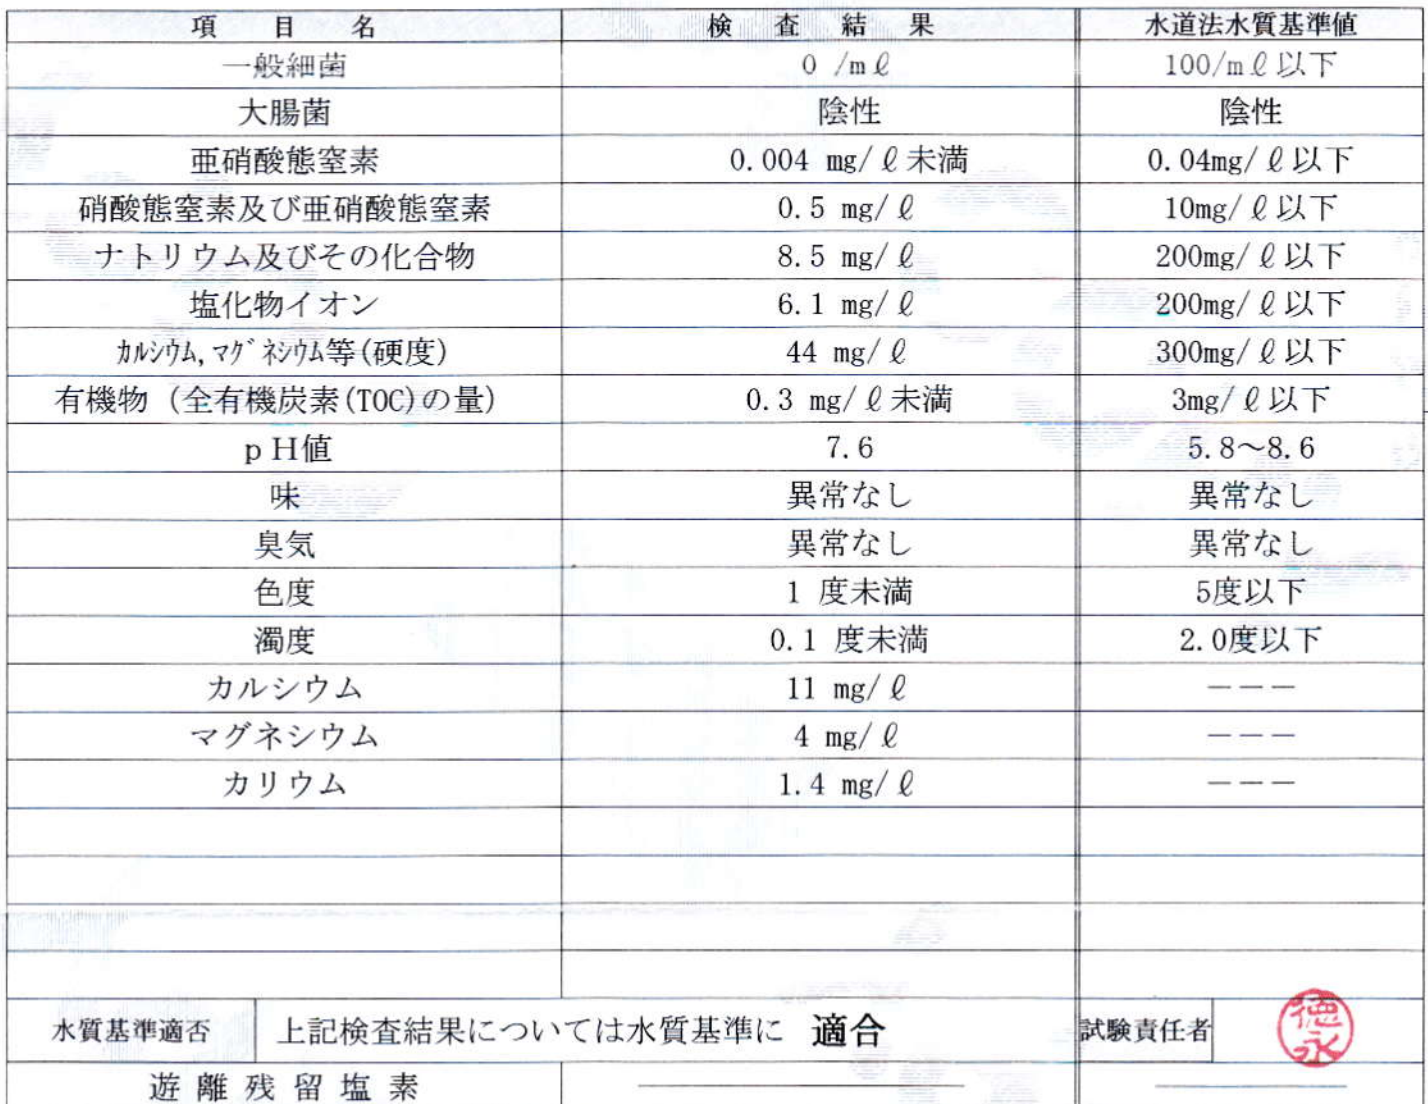 項 目 名 検 査 結 果 水道法水質基準値
一般細菌 0 /mℓ 100/mℓ以下
大腸菌 陰性 陰性
亜硝酸態窒素 0.004 mg/ℓ未満 0.04mg/ℓ以下
硝酸態窒素及び亜硝酸態窒素 0.5 mg/ℓ 10mg/ℓ以下
ナトリウム及びその化合物 8.5 mg/ℓ 200mg/ℓ以下
塩化物イオン 6.1 mg/ℓ 200mg/ℓ以下
ｶﾙｼｳﾑ,ﾏｸﾞﾈｼｳﾑ等(硬度) 44 mg/ℓ 300mg/ℓ以下
有機物 (全有機炭素(TOC)の量) 0.3 mg/ℓ未満 3mg/ℓ以下
ｐＨ値 7.6 5.8～8.6
味 異常なし 異常なし
臭気 異常なし 異常なし
色度 1 度未満 5度以下
濁度 0.1 度未満 2.0度以下
カルシウム 11 mg/ℓ ―――
マグネシウム 4 mg/ℓ ―――
カリウム 1.4 mg/ℓ ―――
水質基準適否 上記検査結果については水質基準に 適合 試験責任者 徳永
遊 離 残 留 塩 素